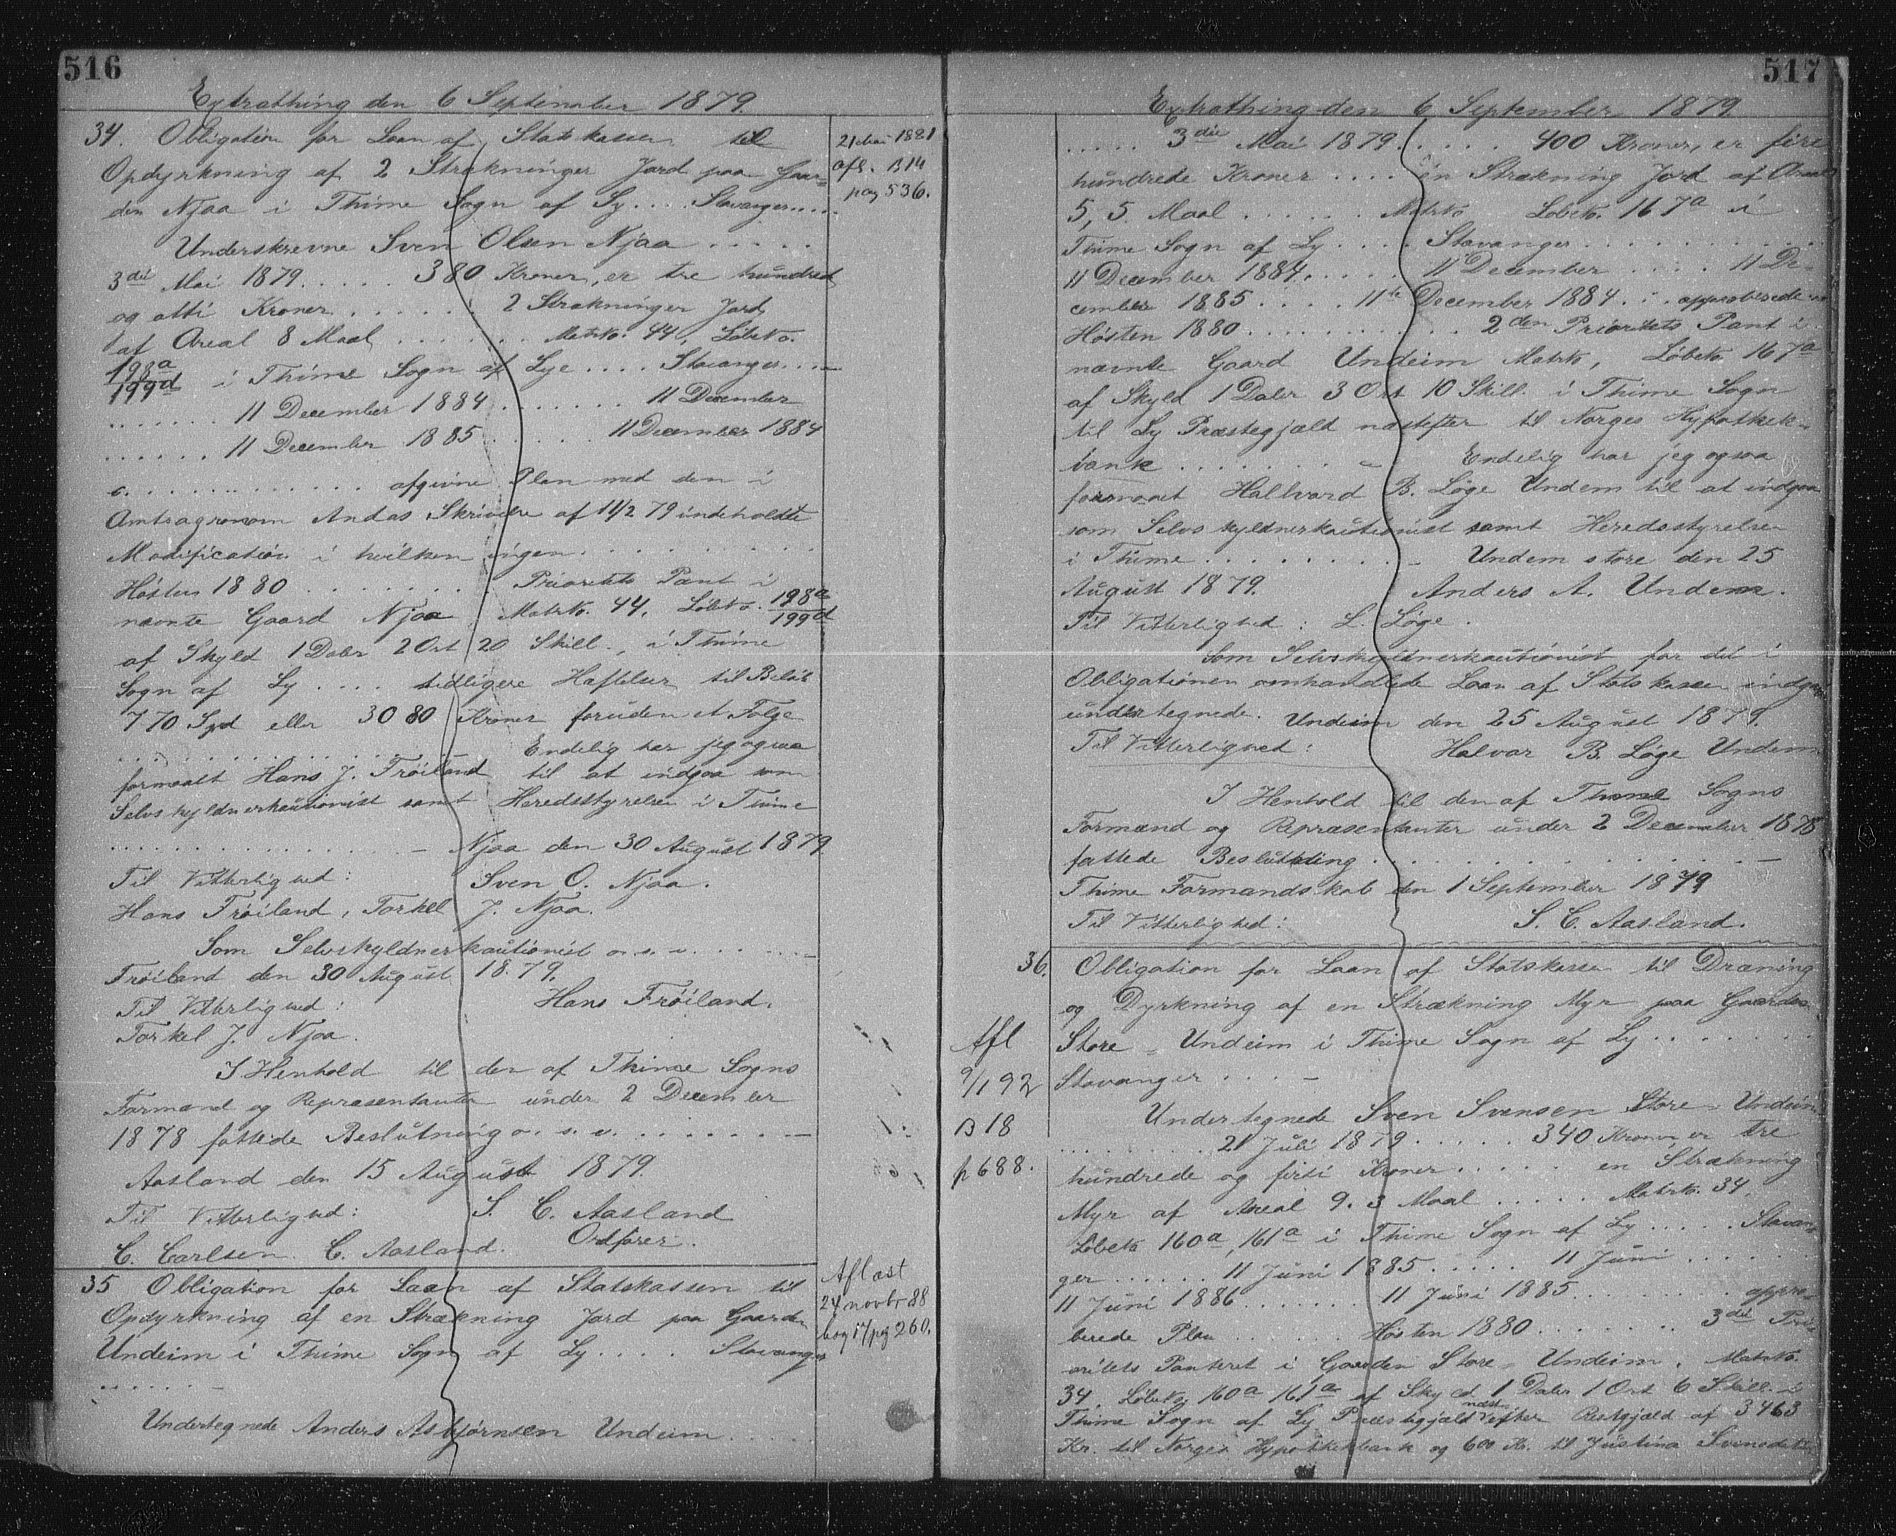 516
Extrathing den 6 September 1879.
34. Obligation for Laan af Statskassen til
Opdyrkning af 2 Strækninger Jord paa Gaar-
den Njaa i Thime Sogn af Ly .... Stavanger.....
21 Mai 1881
afl. B 14
pag 536.
Underskrevne Sven Olsen Njaa .....
3die Mai 1879. .... 380 Kroner, er tre hundred
og otti Kroner ...... 2 Strækninger Jord
af Areal 8 Maal ....... Matrko. 44, Løbeko.
198a/199d i Thime Sogn af Lye .... Stavanger....
....... 11 December 1884 ....... 11 December
...... 11 December 1885 ..... 11 December 1884
............. afgivne Plan med den i
Amtsagronom Andas Skrivelse af 11/2 79 indeholdte
Modification i hvilken ingen ..........
Høsten 1880 ......... Prioritets Pant i
nævnte Gaard Njaa Matrko. 44, Løbeko. 198a/199d
af Skyld 1 Daler 2 Ort 20 Skill., i Thime
Sogn af Ly .... tidligere Hæftelser til Beløb
770 Spd eller 3080 Kroner foruden et Følge
............ Endelig har jeg ogsaa
formaalt Hans J. Frøiland til at indgaa som
Selvskyldnerkautionist samt Heredsstyrelsen i Thime
............... – Njaa den 30 August 1879.
Til Vitterlighed: Sven O. Njaa.
Hans Frøiland, Torkel J. Njaa.
Som Selvskyldnerkautionist o. s. v. ......
Frøiland den 30 August 1879.
Til Vitterlighed: Hans Frøiland.
Torkel J. Njaa.
I Henhold til den af Thime Sogns
Formænd og Repræsentanter under 2 December
1878 fattede Beslutning o. s. v. .......
Aasland den 15 August 1879.
Til Vitterlighed: S. C. Aasland
C. Carlsen. C. Aasland. Ordfører.
35 Obligation for Laan af Statskassen til
Opdyrkning af en Strækning Jord paa Gaarden
Undeim i Thime Sogn af Ly .... Stavanger
Aflæst
24 novbr 88
bog 17 pag 260.
Undertegnede Anders Asbjørnsen Undeim ....
517
Extrathing den 6 September 1879.
..... 3die Mai 1879 ..... 400 Kroner, er fire
hundrede Kroner .... én Strækning Jord af Areal
5,5 Maal ...... Matrko Løbeko. 167a i
Thime Sogn af Ly .... Stavanger ..........
11 December 1884. .... 11 December .... 11 De-
cember 1885 .... 11te December 1884 ... approberede
Høsten 1880 ............ 2den Prioritets Pant i
nævnte Gaard Undeim Matrko, Løbeko 167a
af Skyld 1 Daler 3 Ort 10 Skill. i Thime Sogn
til Ly Præstegjæld næstefter til Norges Hypothek-
bank ........ – Endelig har jeg ogsaa
formaaet Hallvard B. Løge Undem til at indgaa
som Selvskyldnerkautionist samt Heredsstyrelsen
i Thime ......... – Undem store den 25
August 1879. Anders A. Undem.
Til Vitterlighed: L. Løge.
Som Selvskyldnerkautionist for det i
Obligationen omhandlede Laan af Statskassen indgaar
undertegnede. Undeim den 25 August 1879.
Til Vitterlighed: Halvar B. Løge Undem
I Henhold til den af Thime Sogns
Formænd og Repræsentanter under 2 December 1878
fattede Beslutning ...............
Thime Formandskab den 1 September 1879
Til Vitterlighed: S. C. Aasland.
36. Obligation for Laan af Statskassen til Dræning
og Dyrkning af en Strækning Myr paa Gaarden
Store - Undeim i Thime Sogn af Ly .......
Stavanger .... –
Afl
9/1 92
B 18
p 688.
Undertegnede Sven Svensen Store - Undeim
........ 21 Juli 1879 ..... 340 Kroner er tre
hundrede og firti Kroner ..... en Strækning
Myr af Areal 9.3 Maal ..... Matrko. 34,
Løbeko 160a, 161a i Thime Sogn af Ly ..... Stavan-
ger ...... 11 Juni 1885 ..... 11 Juni ......
11 Juni 1886 ....... 11 Juni 1885 ......... appro-
berede Plan ...... Høsten 1880 ........ 3die Pri-
oritets Panteret i Gaarden Store - Undeim, Matrko.
34, Løbeko 160a 161a af Skyld 1 Daler 1 Ort 6 Skill. i
Thime Sogn af Ly Præstegjæld næst efter Restgjæld af 3463
Kr. til Norges Hypothekbank og 600 Kr. til Justina Svensdatter